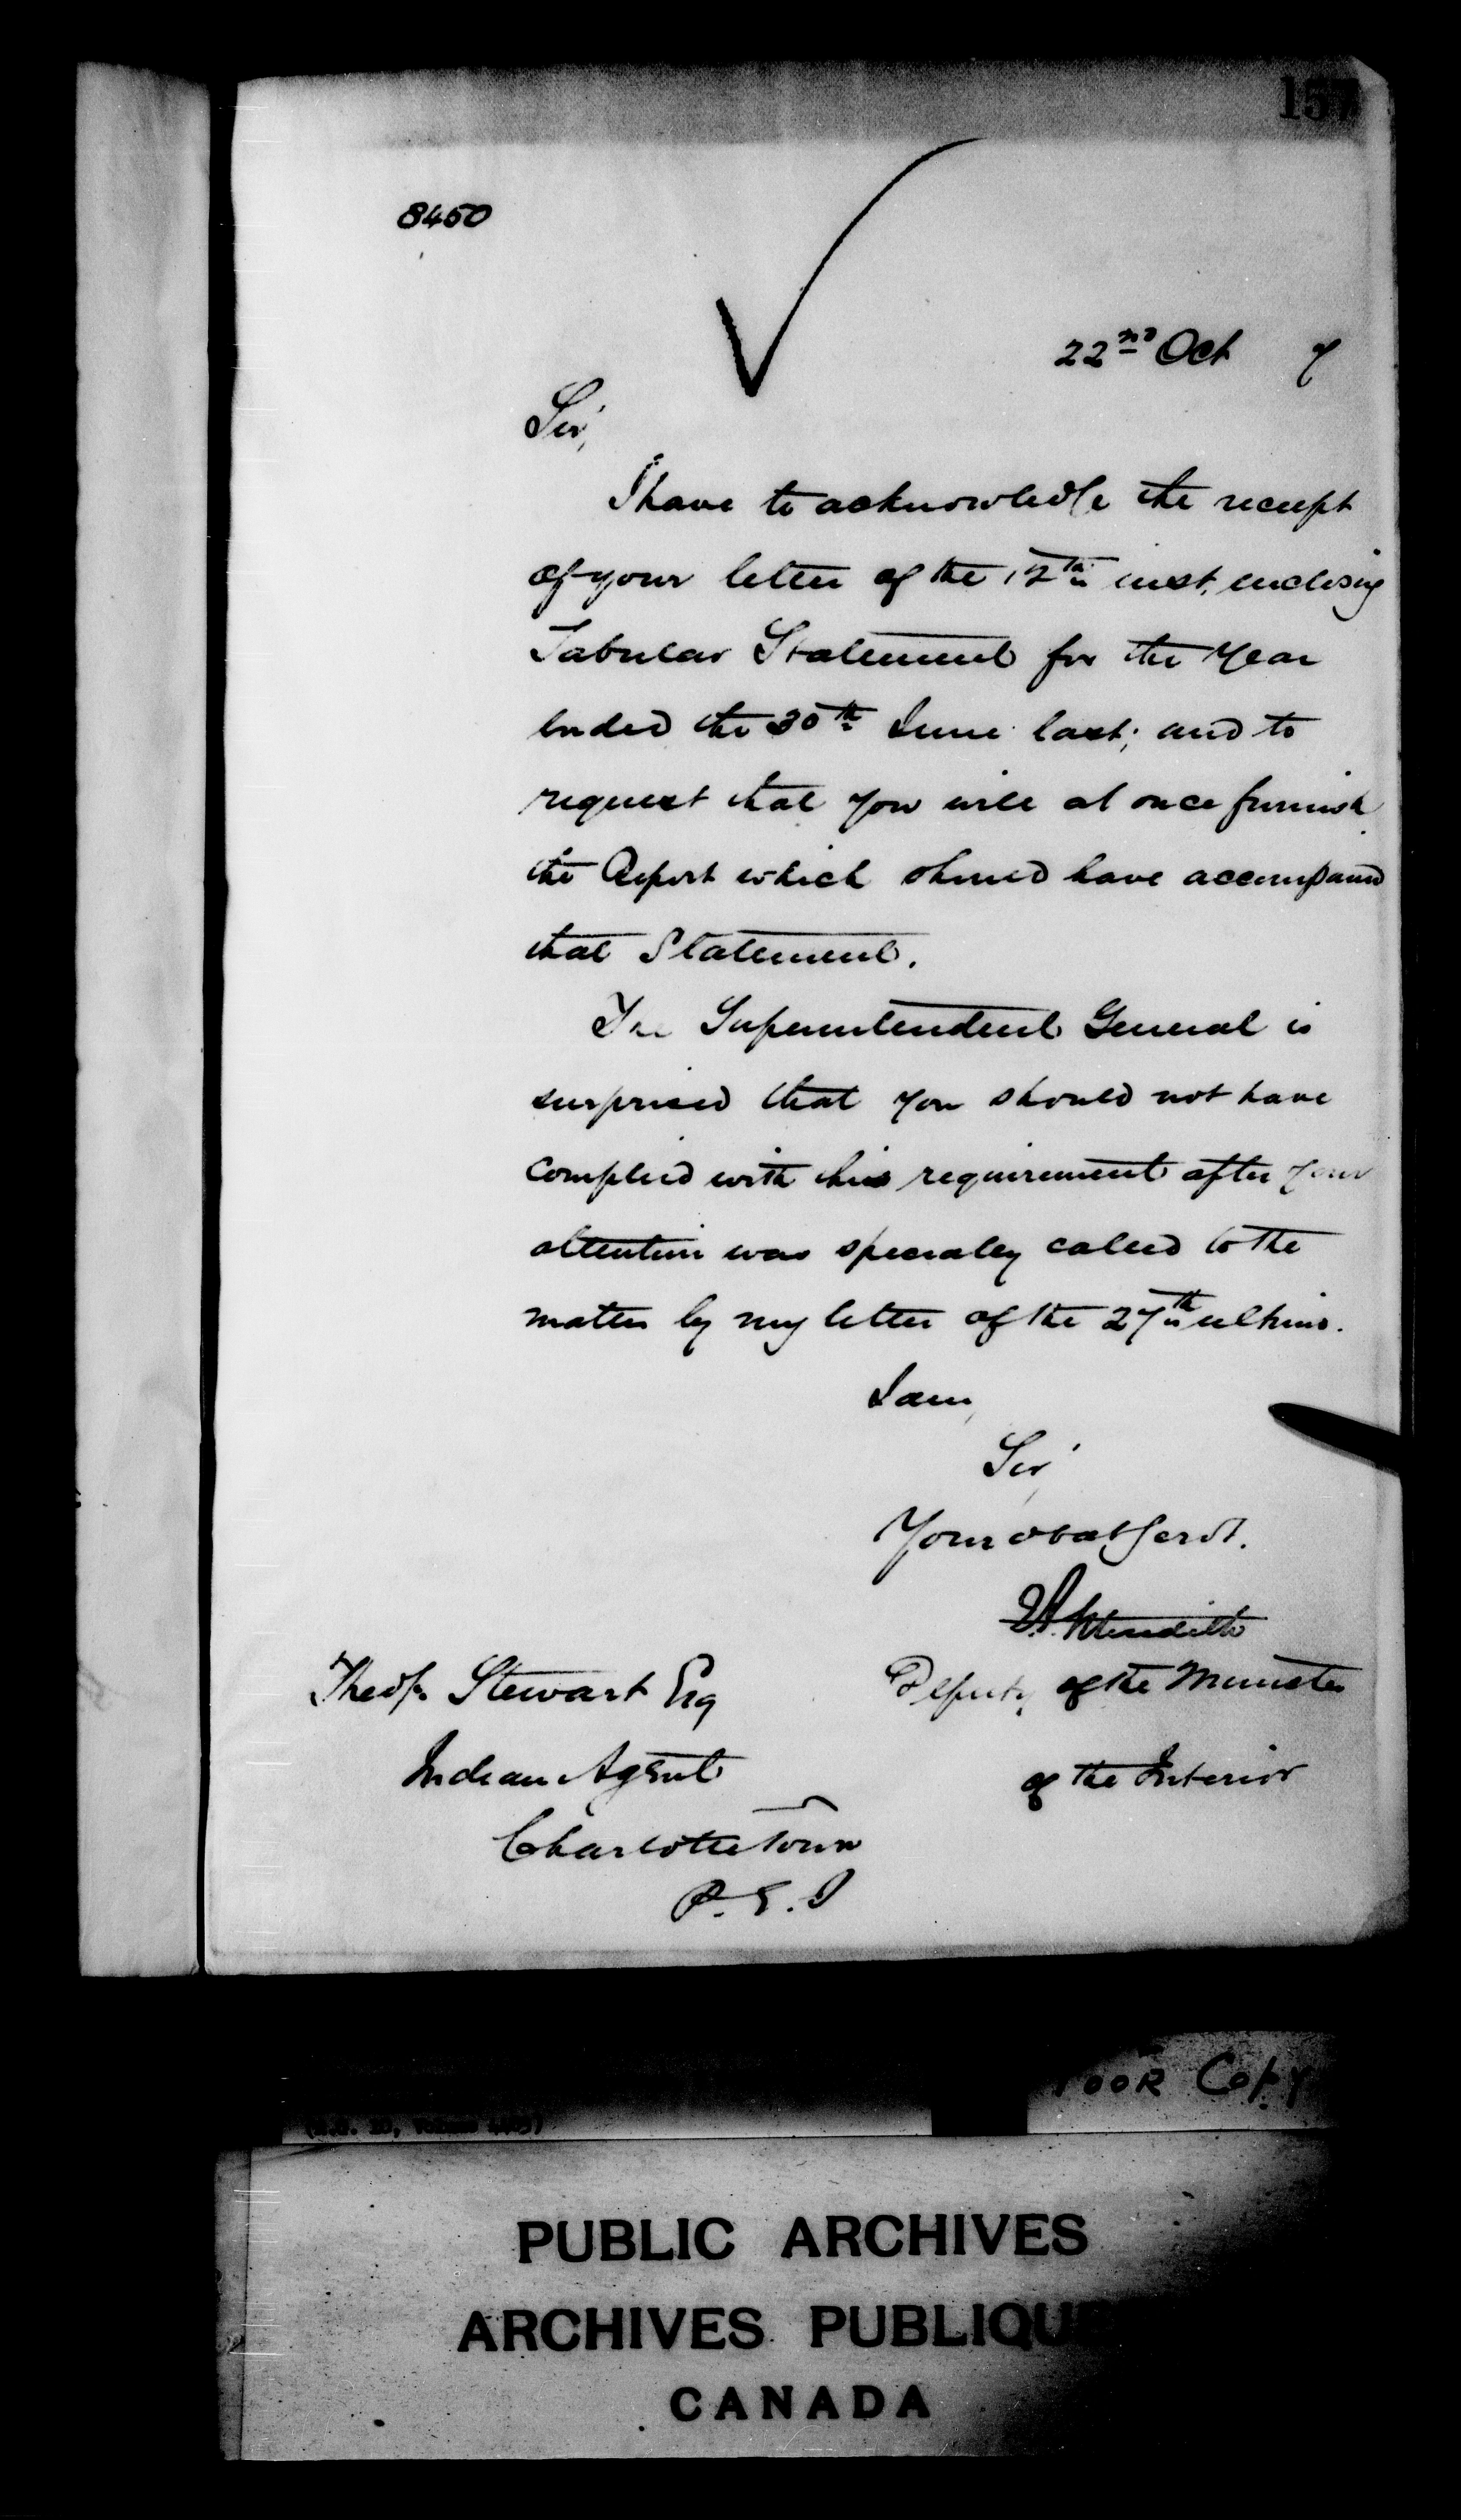 157
8450
22nd Oct 7
Sir,
I have to acknowledge the receipt
of your letter of the 12th inst. enclosing
Tabular Statement for the Year
ended the 30th June last; and to
request that you will at once furnish
the Report which should have accompanied
that Statement.
The Superintendent General is
surprised that you should not have
complied with this requirement after your
attention was specially called to the
matter by my letter of the 27th ultimo.
I am,
Sir,
Your obdt Servt.
Meredith
Theop. Stewart Esq
Deputy of the Minister
Indian Agent
of the Interior
Charlottetown
P.E.I
Poor Copy
PUBLIC ARCHIVES
ARCHIVES PUBLIQUES
CANADA